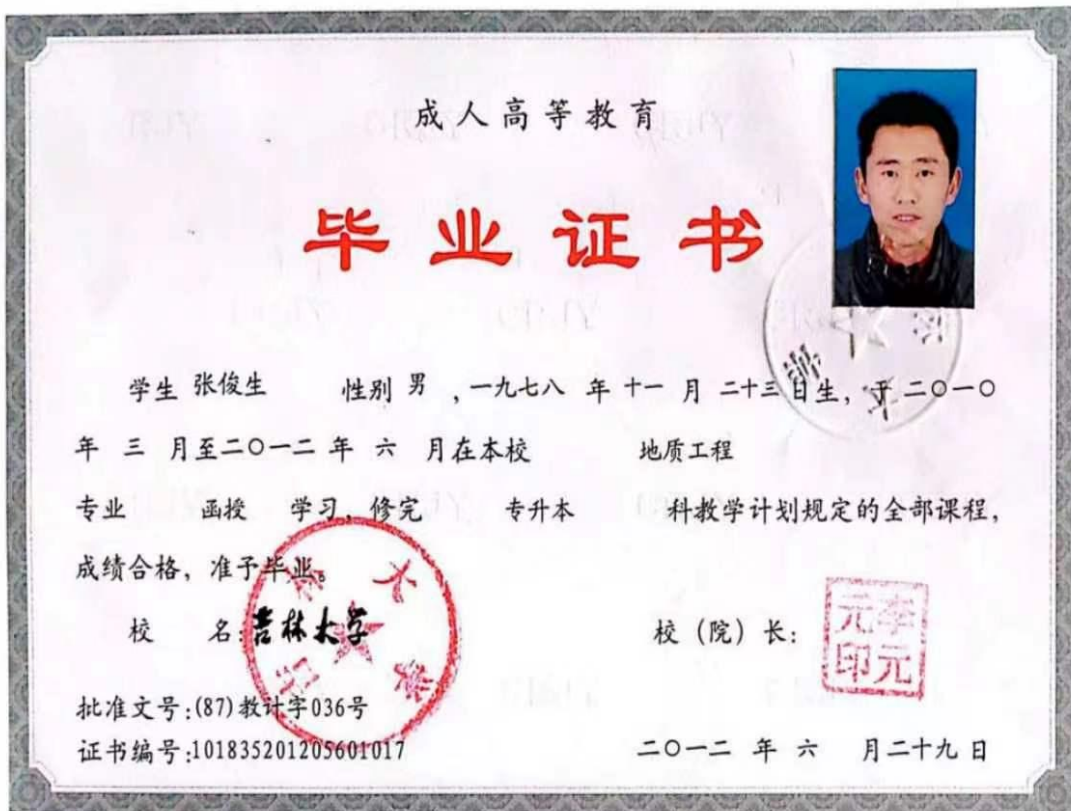 成人高等教育
毕业证书
学生 张俊生 性别 男 ,一九七八 年 十一 月 二十三 日生，于 二〇一〇
年 三 月至二〇一二 年 六 月在本校 地质工程
专业 函授 学习，修完 专升本 科教学计划规定的全部课程，
成绩合格，准予毕业。
校 名：吉林大学
校（院）长：
元李
印元
批准文号：(87)教计字036号
证书编号：101835201205601017
二〇一二 年 六 月二十九 日